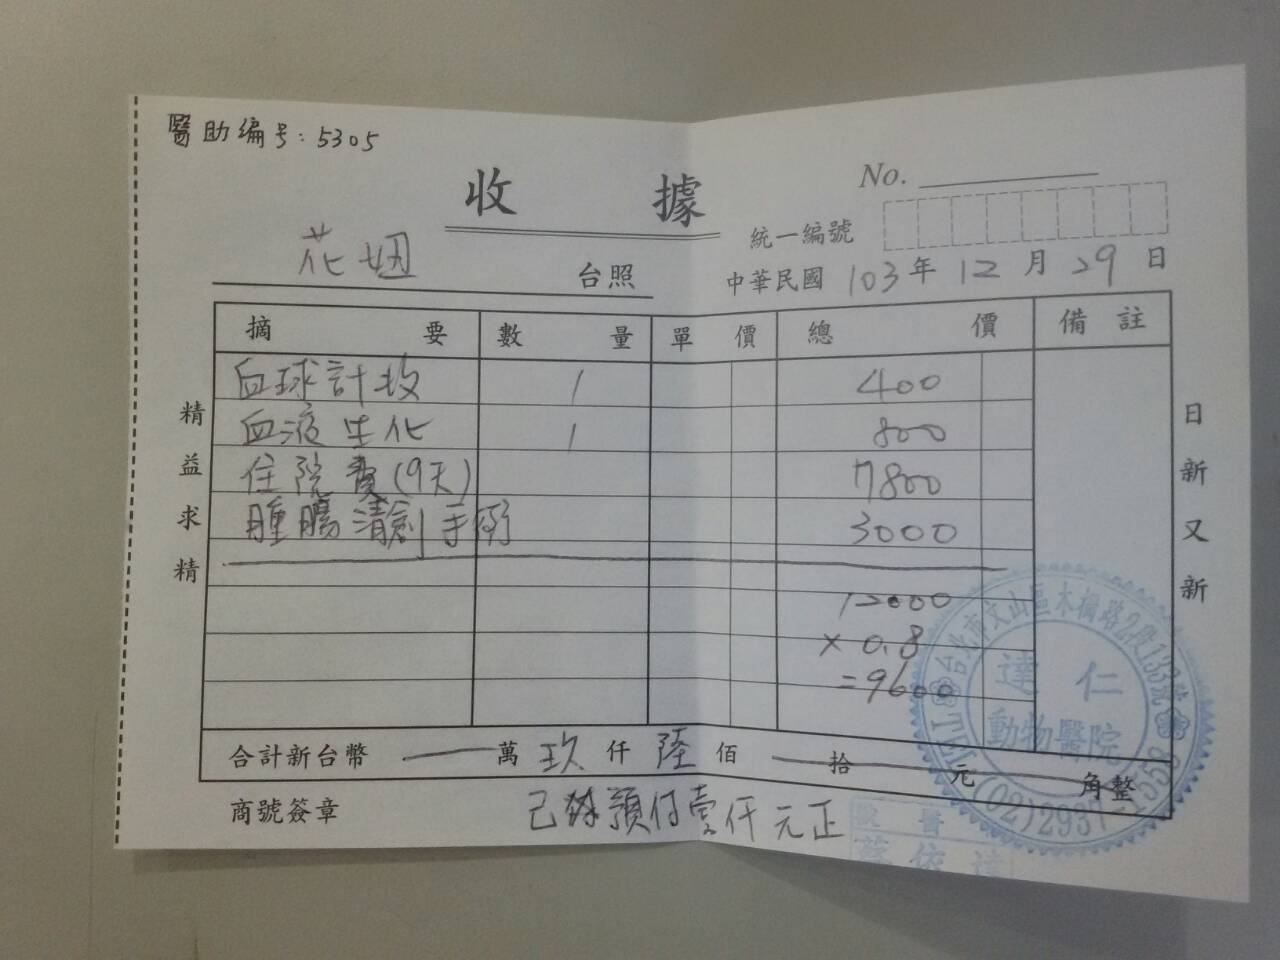 醫助編号:5305
收據
No.
統一編號
花妞 台照
中華民國 103年 12月 29日
摘要 數量 單價 總價 備註
血球計数 1 400
血液生化 1 800
住院費(9天) 7800
腫瘍清創手術 3000
12000
× 0.8
=9600
合計新台幣 — 萬 玖 仟 陸 佰 — 拾 元 角整
商號簽章
已 預付壹仟元正
精益求精
日新又新
台北市文山區木柵路2段133號
達仁
動物醫院
TEL(02)2937-1558
獸醫